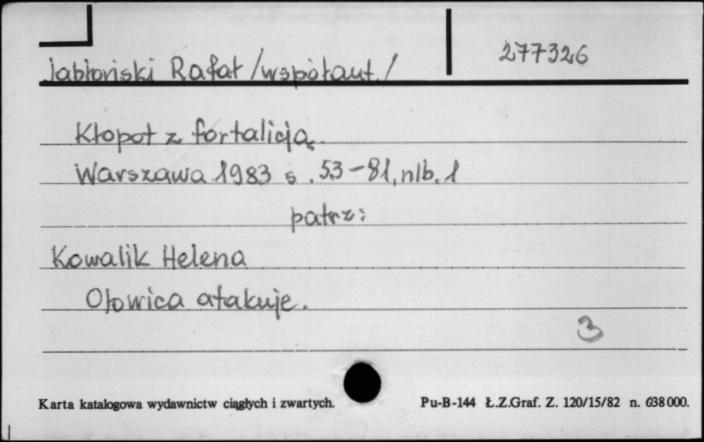 Jabłoński Rafał /współaut./ 277326
Kłopot z fortalicją.
Warszawa 1983 s. 53-81, nlb. 1
patrz:
Kowalik Helena
Ołowica atakuje.
3
Karta katalogowa wydawnictw ciągłych i zwartych. Pu-B-144 Ł.Z.Graf. Z. 120/15/82 n. 638000.